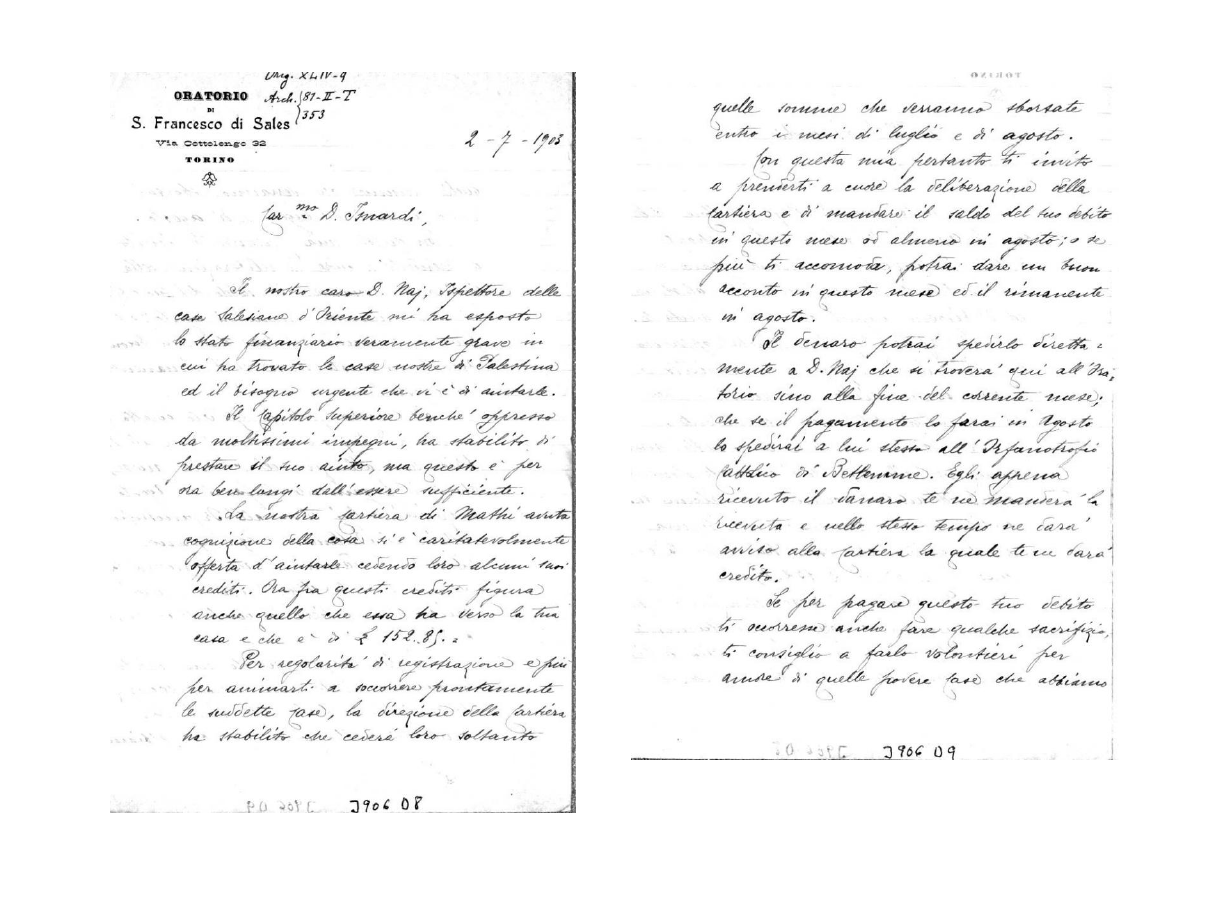 Orig. XLIV-9
ORATORIO
Arch. 81-II-T
DI
353
S. Francesco di Sales
Via Cottolengo 32
TORINO
2 - 7 - 1903
Carmo D. Isnardi,
Il nostro caro D. Naj, Ispettore delle
case Salesiane d'Oriente mi ha esposto
lo stato finanziario veramente grave in
cui ha trovato le case nostre di Palestina
ed il bisogno urgente che vi è di aiutarle.
Il Capitolo Superiore benchè oppresso
da moltissimi impegni, ha stabilito di
prestare il suo aiuto, ma questo è per
ora ben lungi dall'essere sufficiente.
La nostra Cartiera di Mathi avuta
cognizione della cosa si è caritatevolmente
offerta d'aiutarle cedendo loro alcuni suoi
crediti. Ora fra questi crediti figura
anche quello che essa ha verso la tua
casa e che è di £ 152.85. =
Per regolarità di registrazione e più
per animarti a soccorrere prontamente
le suddette Case, la direzione della Cartiera
ha stabilito che cederà loro soltanto
J906 D8
quelle somme che verranno sborsate
entro i mesi di luglio e di agosto.
Con questa mia pertanto ti invito
a prenderti a cuore la deliberazione della
Cartiera e di mandare il saldo del tuo debito
in questo mese od almeno in agosto; o se
più ti accomoda, potrai dare un buon
acconto in questo mese ed il rimanente
in agosto.
Il denaro potrai spedirlo diretta=
mente a D. Naj che si troverà qui all'Ora=
torio sino alla fine del corrente mese;
che se il pagamento lo farai in Agosto
lo spedirai a lui stesso all'Orfanotrofio
Cattolico di Betlemme. Egli appena
ricevuto il danaro te ne manderà la
ricevuta e nello stesso tempo ne darà
avviso alla Cartiera la quale te ne darà
credito.
Se per pagare questo tuo debito
ti occorresse anche fare qualche sacrifizio,
ti consiglio a farlo volontieri per
amore di quelle povere Case che abbiamo
J906 D9